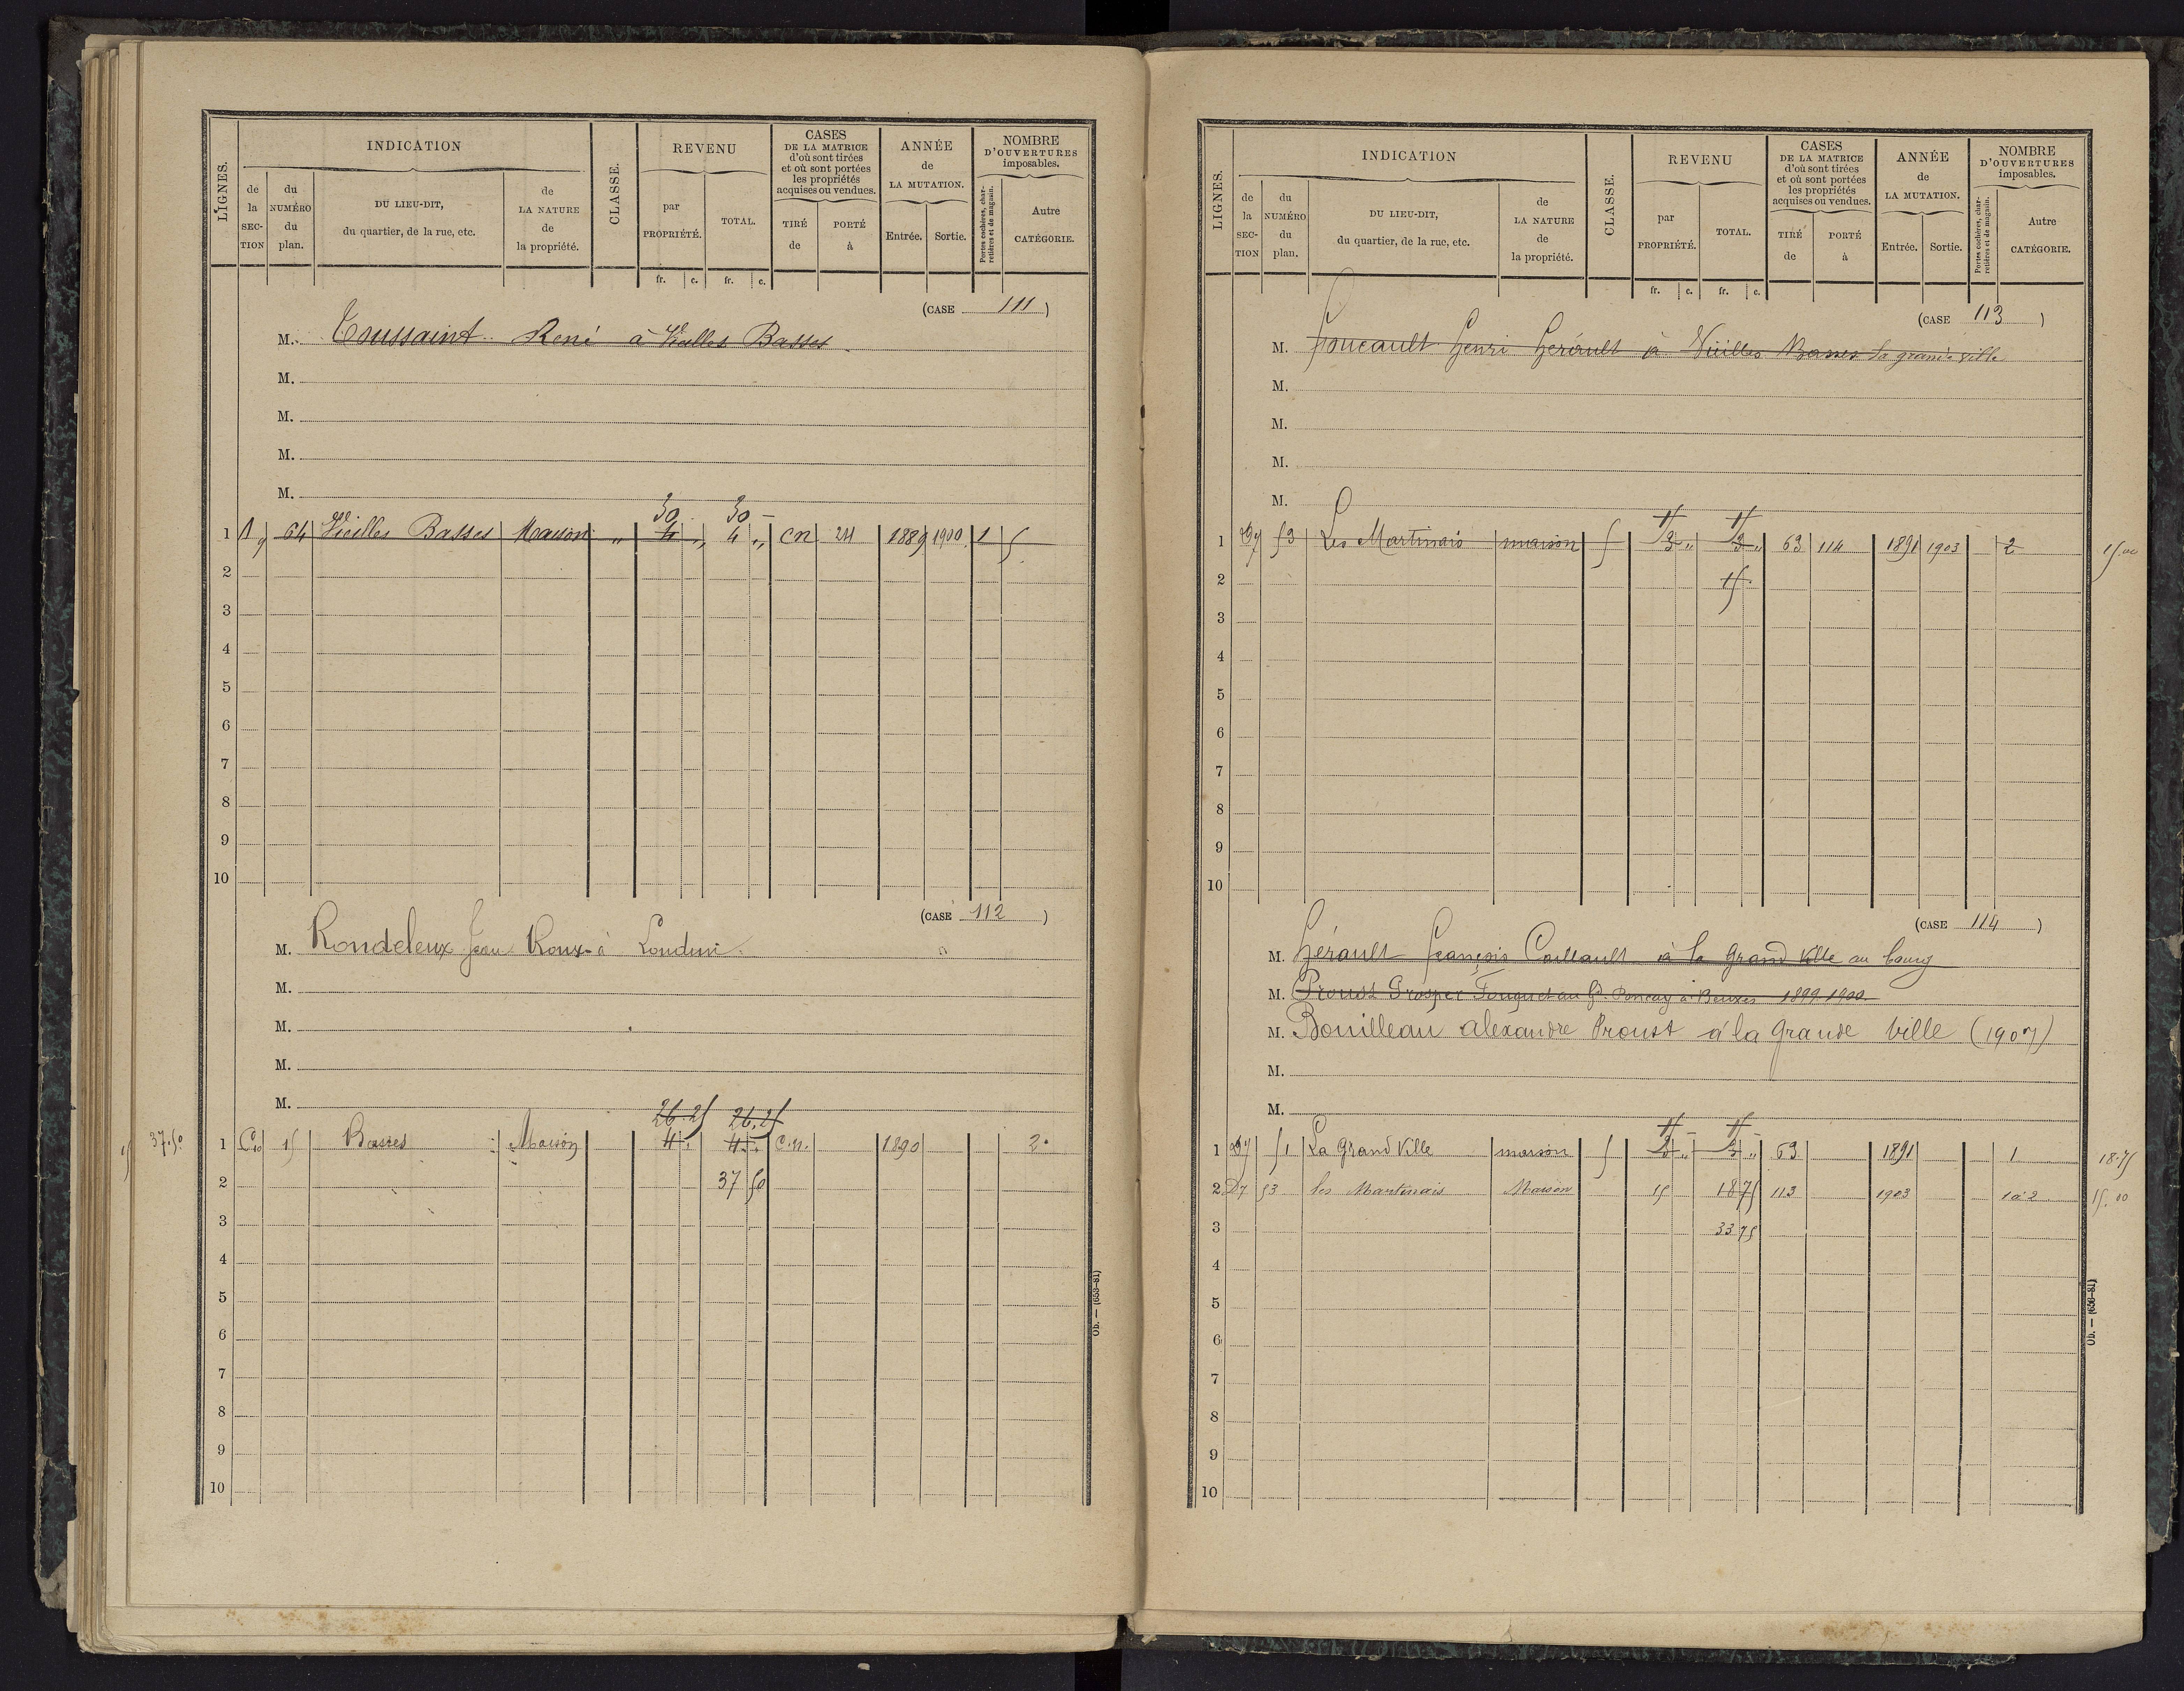 LIGNES. INDICATION CLASSE. REVENU CASES DE LA MATRICE d'où sont tirées et où sont portées les propriétés acquises ou vendues. ANNÉE de LA MUTATION. NOMBRE D'OUVERTURES imposables.
de la SECTION du NUMÉRO du plan. DU LIEU-DIT, du quartier, de la rue, etc. de LA NATURE de la propriété. par PROPRIÉTÉ. TOTAL. TIRÉ de PORTÉ à Entrée. Sortie. Portes cochères, charretières et de magasin. Autre CATÉGORIE.
fr. c. fr. c.
(CASE 111)
M. Toussaint René à Vieilles Basses
M.
M.
M.
M.
30 30 –
1 64 Vieilles Basses Maison " 4 " 4 " cn 24 1889 1900 1 5
2
3
4
5
6
7
8
9
10
(CASE 112)
M. Rondeleux Jean Roux à Loudun
M.
M.
M.
M.
26.25 26.25
37.50 1 C10 15 Basses Maison 4 . 4 . c.n. 1890 2
2 37 50
3
4
5
6
7
8
9
10
Ob. — (653-81)
LIGNES. INDICATION CLASSE. REVENU CASES DE LA MATRICE d'où sont tirées et où sont portées les propriétés acquises ou vendues. ANNÉE de LA MUTATION. NOMBRE D'OUVERTURES imposables.
de la SECTION du NUMÉRO du plan. DU LIEU-DIT, du quartier, de la rue, etc. de LA NATURE de la propriété. par PROPRIÉTÉ. TOTAL. TIRÉ de PORTÉ à Entrée. Sortie. Portes cochères, charretières et de magasin. Autre CATÉGORIE.
fr. c. fr. c.
(CASE 113)
M. Foucault Henri Hérault à Vieilles Basses la grande ville
M.
M.
M.
M.
1 D7 53 Les Martinais maison 5 3 " 3 " 63 114 1891 1903 2 15.00
2 15
3
4
5
6
7
8
9
10
(CASE 114)
M. Hérault François Caillault à la Grand Ville au bourg
M. Proust Prosper Fouquet au Gd. Poncay à Beuxes 1899 1900
M. Bouilleau Alexandre Proust à la Grande Ville (1907)
M.
M.
1 D7 51 La Grand Ville maison 5 3 " 3 " 63 1891 1 18.75
2 D7 53 les Martinais Maison 15 18 75 113 1903 1 à 2 15.00
3 33 75
4
5
6
7
8
9
10
Ob. — (653-81)